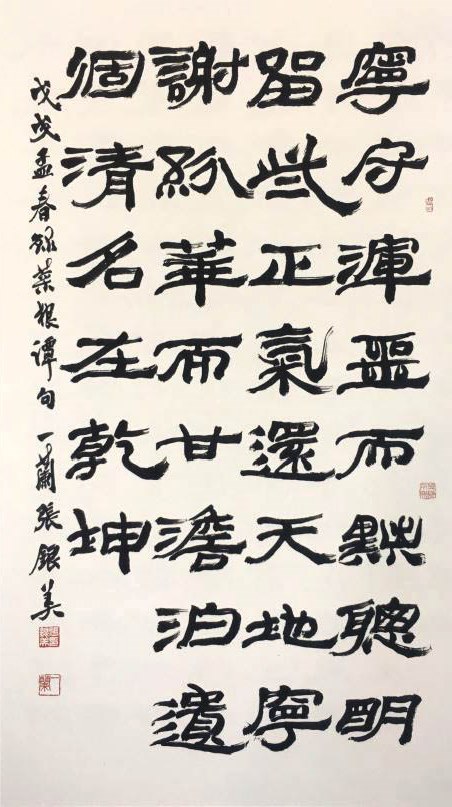 寧守渾噩而黜聰明
留些正氣還天地寧
謝紛華而甘澹泊遺
個清名在乾坤
戊戌孟春錄菜根譚句一蘭張銀美